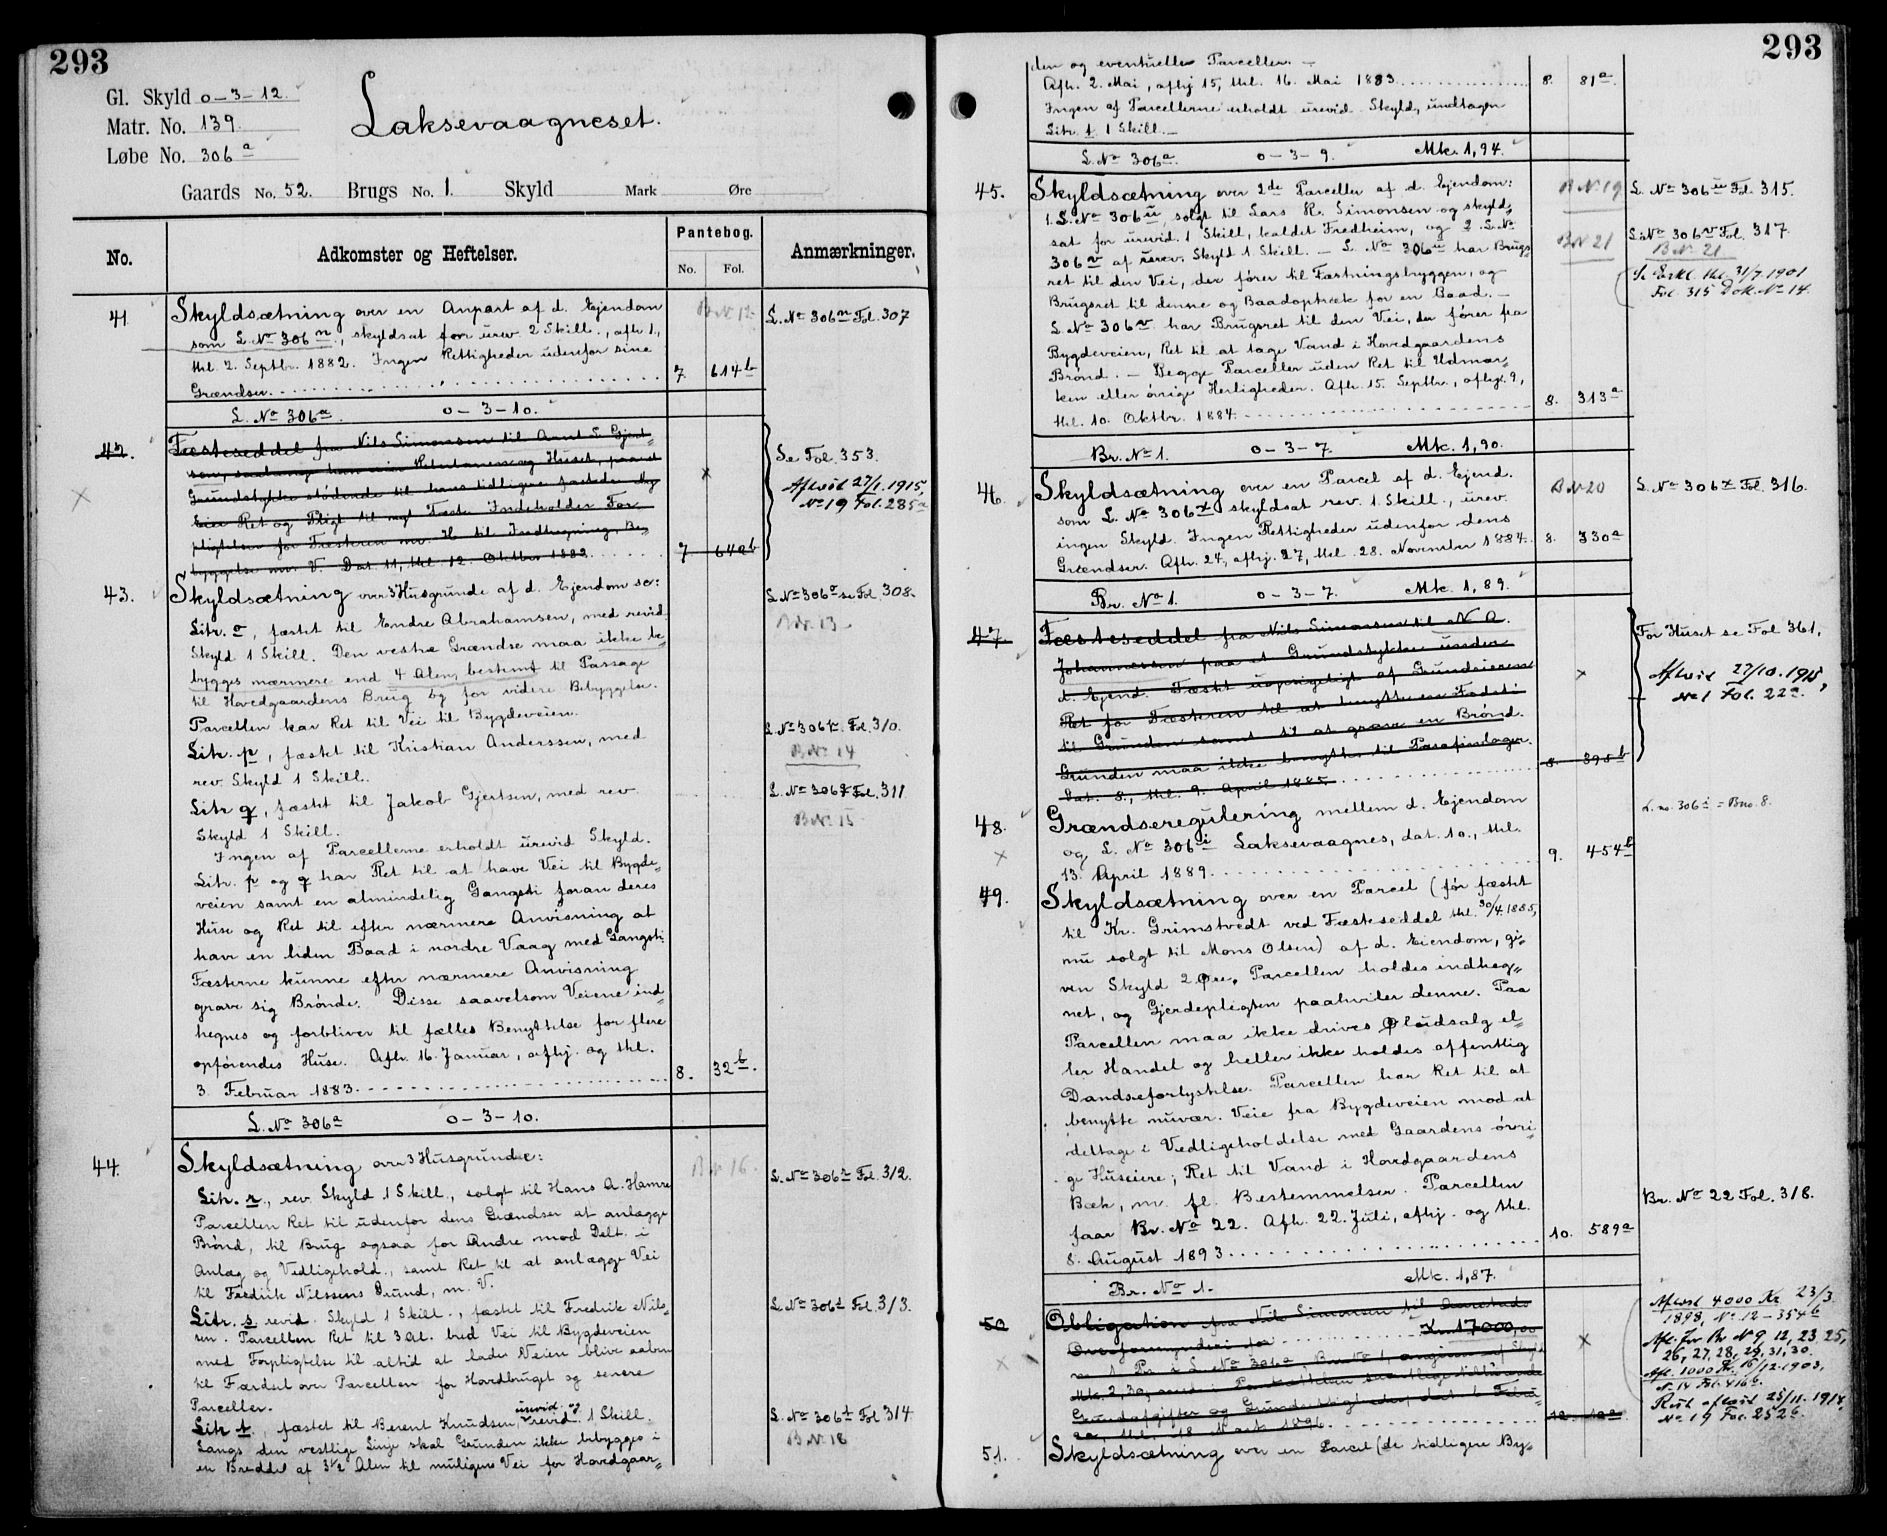 293
Gl. Skyld 0-3-12.
Matr. No. 139.
Løbe No. 306a
Laksevaagneset.
Gaards No. 52. Brugs No. 1. Skyld Mark Øre
No. Adkomster og Heftelser. Pantebog. Anmærkninger.
No. Fol.
41 Skyldsætning over en Anpart af d. Ejendom B.No. 12 L. No 306n Fol. 307
som L. No 306n, skyldsat for urev. 2 Skill., afh. 1.,
thl. 2. Septbr. 1882. Ingen Rettigheder udenfor sine
Grændser. 7. 614b
L. No 306a. 0-3-10.
42. Fæsteseddel fra Nils Simonsen til Arnt S. Gjert-
sen, paa et Se Fol. 353.
Grundstykke stødende til hans tidligere fæstede × Aflæst 27/1.1915,
Ret og Pligt til Indeholder For- No 19 Fol. 285a
pligtelser for Fæsteren m. H. til Indhegning, Be-
byggelse m. V. Dat. 11, thl. 12. Oktbr. 1882. 7 640b
43. Skyldsætning over 3 Husgrunde af d. Ejendom sc: L No 306o se Fol. 308.
Litr. o, fæstet til Endre Abrahamsen, med revid. B.Nr. 13
Skyld 1 Skill. Den vestre Grændse maa ikke be-
bygges nærmere end 4 Alen, bestemt til Passage
til Hovedgaardens Brug og for videre Bebyggelse.
Parcellen har Ret til Vei til Bygdeveien.
Litr. p, fæstet til Kristian Anderssen, med L. No 306p Fol. 310.
rev. Skyld 1 Skill. B.No. 14
Litr q, fæstet til Jakob Gjertsen, med rev. L. No 306q Fol. 311
Skyld 1 Skill. B.No. 15
Ingen af Parcellerne erholdt urevid Skyld.
Litr. p og q har Ret til at have Vei til Bygde-
veien samt en almindelig Gangsti foran deres
Huse og Ret til efter nærmere Anvisning at
have en liden Baad i nordre Vaag med Gangsti.
Fæsterne kunne efter nærmere Anvisning
grave sig Brønde. Disse saavelsom Veiene ind-
hegnes og forbliver til fælles Benyttelse for flere
opførendes Huse. Afh. 16. Januar, afhj. og thl.
3. Februar 1883. 8. 32b.
L. No 306a 0-3-10.
44. Skyldsætning over 3 Husgrunde: B.Nr 16.
Litr. r., rev. Skyld 1 Skill., solgt til Hans A. Hamre L. No 306r Fol. 312.
Parcellen Ret til udenfor dens Grændser at anlægge
Brønd, til Brug ogsaa for Andre mod Delt. i
Anlæg og Vedligehold., samt Ret til at anlægge Vei
til Fredrik Nilssens Grund, m. V.
Litr. s revid. Skyld 1 Skill., fæstet til Fredrik Nils- L No 306s Fol. 313.
sen. Parcellen Ret til 3 Al. bred Vei til Bygdeveien
med Forpligtelse til altid at lade Veien blive aaben
til Færdsel over Parcellen for Hovedbruget og senere
Parceller.
Litr t., fæstet til Berent Knudsen urevid. og revid. 1 Skill. L. No 306t Fol 314
Langs den vestlige Linje skal Grunden ikke bebygges i B.Nr. 18
en Breddel af 3½ Alen til muligens Vei for Hovedgaar-
293
den og eventuelle Parceller. -
Afh. 2. Mai, afhj 15, thl. 16. Mai 1883. 8. 81a.
Ingen af Parcellerne erholdt urevid. Skyld, undtagen
Litr. t 1 Skill. -
L. No 306a. 0-3-9. Mk. 1,94.
45. Skyldsætning over 2de Parceller af d. Ejendom: B.Nr. 19 L. No 306u Fol. 315.
1. L. No 306u, solgt til Lars K. Simonsen og skyld-
sat for urevid. 1 Skill, kaldet Fredheim, og 2. L. No B.Nr 21 L. No 306v Fol. 317.
306v af urev. Skyld 1 Skill. - L. No 306u har Brugs- B.Nr. 21
ret til den Vei, der fører til Fæstningsbryggen, og Se Erkl. thl. 31/7.1901
Brugsret til denne og Baadoptræk for en Baad. - Fol. 315 Dok. No 14.
L. No 306v har Brugsret til den Vei, der fører fra
Bygdeveien, Ret til at tage Vand i Hovedgaardens
Brønd. - Begge Parceller uden Ret til Udmar-
ken eller øvrige Herligheder. Afh. 15. Septbr., afhj. 9,
thl. 10. Oktbr. 1884. 8. 313a
Br. No 1. 0-3-7. Mk. 1,90.
46. Skyldsætning over en Parcel af d. Ejend. B.Nr 20 L. No 306x Fol. 316.
som L. No 306x skyldsat rev. 1 Skill., urev.
ingen Skyld. Ingen Rettigheder udenfor dens
Grændser. Afh. 24, afhj. 27, thl. 28. November 1884. 8. 330a
Br. No 1. 0-3-7. Mk. 1,89.
47. Fæsteseddel fra Nils Simonsen til N. A. For Huset se Fol 361,
Johannessen paa et Grundstykke under
d. Ejend. Fæstet uopsigeligt af Grundeieren × Aflæst 27/10.1915,
Ret for Fæsteren til at benytte en Fodsti No 1 Fol. 22a.
til Grunden samt til at grave en Brønd.
Grunden maa ikke benyttes til Parafinlager.
Dat. 8., thl. 9. April 1885. 8. 395b
48. Grændseregulering mellem d. Ejendom L. no. 306i = Bno. 8.
og L. No 306i Laksevaagnes, dat. 10., thl.
13. April 1889. 9. 454b
49. Skyldsætning over en Parcel (før fæstet
til Kr. Grimstvedt ved Fæsteseddel thl. 30/4.1885,
nu solgt til Mons Olsen) af d. Eiendom, gi-
ven Skyld 2 Øre. Parcellen holdes indheg-
net, og Gjerdepligten paahviler denne. Paa
Parcellen maa ikke drives Øludsalg el-
ler Handel og heller ikke holdes offentlig
Dandseforlystelse. Parcellen har Ret til at
benytte nuvær. Veie fra Bygdeveien mod at
deltage i Vedligeholdelse med Gaardens øvri-
ge Huseiere; Ret til Vand i Hovedgaardens
Bæk, m. fl. Bestemmelser. Parcellen Br. No 22 Fol. 318.
faar Br. No 22. Afh. 22. Juli, afhj. og thl.
8. August 1893. 10. 589a
Br. No 1. Mk. 1,87.
50 Obligation fra Nils Simonsen til Aarstads Aflæst 4000 Kr. 23/3
Overformynderi for Kr. 17000,00 1898, No 12-354b
1. Pr. i L. No 306a, Br. No 1, af Skyld × Afl. for Br No 9, 12, 23, 25,
Mk. 2,30, 26, 27, 28, 29, 31, 30.
Grundafgifter og dat. 6. Febru- Afl. 1000 Kr. 15/12.1903,
ar, thl. 18 Marts 1896. N. 14 Fol. 416b.
Rest aflæst 25/11.1914,
No 19 Fol. 252b.
51. Skyldsætning over en Parcel (de tidligere By-